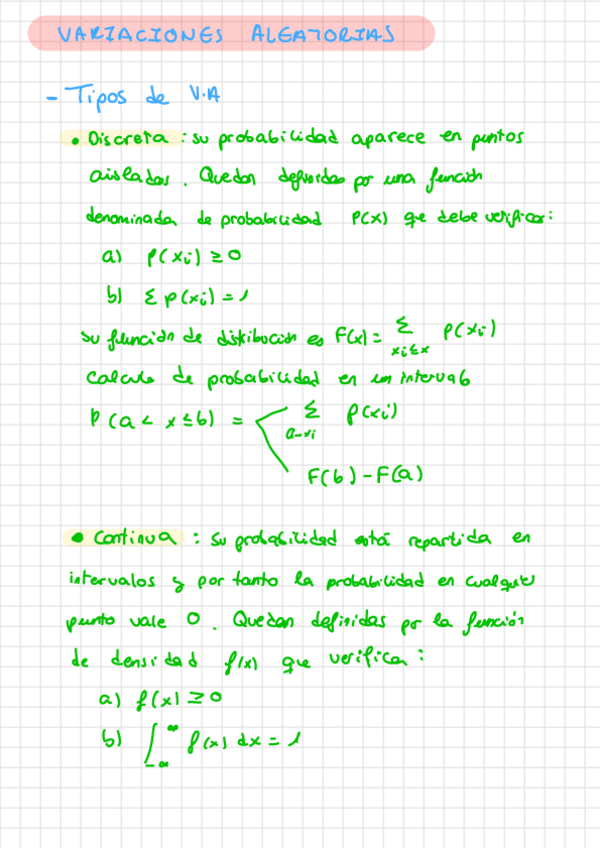 VARIACIONES ALEATORIAS
- Tipos de V.A
• Discreta : su probabilidad aparece en puntos
aislados. Quedan definidas por una función
denominada de probabilidad P(x) que debe verificar:
a) P(xi) ≥ 0
b) Σ p(xi) = 1
su función de distribución es F(x) = Σ P(xi)
xi≤x
calculo de probabilidad en un intervalo
P(a < x ≤ b) = Σ P(xi)
F(b) - F(a)
• Continua : su probabilidad está repartida en
intervalos y por tanto la probabilidad en cualquier
punto vale 0. Quedan definidas por la función
de densidad f(x) que verifica :
a) f(x) ≥ 0
b) ∫_{-∞}^{∞} f(x) dx = 1